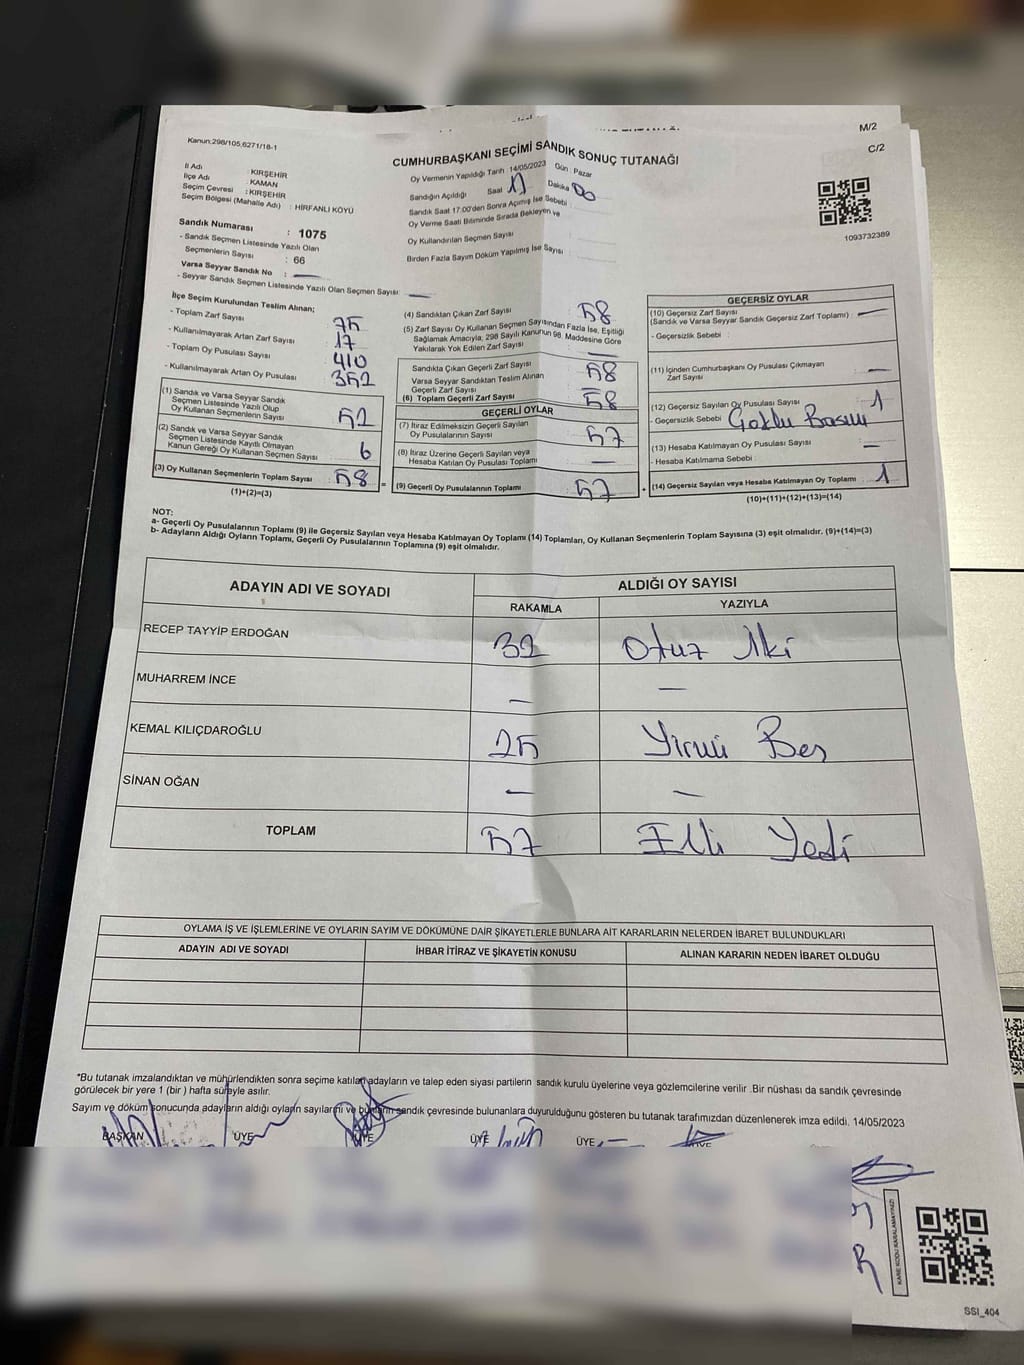 M/2
C/2
Kanun:298/105,6271/18-1
CUMHURBAŞKANI SEÇİMİ SANDIK SONUÇ TUTANAĞI
İl Adı : KIRŞEHİR
İlçe Adı : KAMAN
Seçim Çevresi : KIRŞEHİR
Seçim Bölgesi (Mahalle Adı) : HİRFANLI KÖYÜ
Sandık Numarası : 1075
- Sandık Seçmen Listesinde Yazılı Olan
Seçmenlerin Sayısı : 66
Varsa Seyyar Sandık No : —
- Seyyar Sandık Seçmen Listesinde Yazılı Olan Seçmen Sayısı: —
Oy Vermenin Yapıldığı Tarih :14/05/2023 Gün : Pazar
Sandığın Açıldığı Saat 17 Dakika 00
Sandık Saat 17.00'den Sonra Açımış İse Sebebi :
Oy Verme Saati Bitiminde Sırada Bekleyen ve
Oy Kullandırılan Seçmen Sayısı
Birden Fazla Sayım Döküm Yapılmış İse Sayısı :
1093732389
İlçe Seçim Kurulundan Teslim Alınan;
- Toplam Zarf Sayısı : 75
- Kullanılmayarak Artan Zarf Sayısı : 17
- Toplam Oy Pusulası Sayısı : 410
- Kullanılmayarak Artan Oy Pusulası : 352
(1) Sandık ve Varsa Seyyar Sandık
Seçmen Listesinde Yazılı Olup
Oy Kullanan Seçmenlerin Sayısı : 52
(2) Sandık ve Varsa Seyyar Sandık
Seçmen Listesinde Kayıtlı Olmayan
Kanun Gereği Oy Kullanan Seçmen Sayısı : 6
(3) Oy Kullanan Seçmenlerin Toplam Sayısı : 58
(1)+(2)=(3)
(4) Sandıktan Çıkan Zarf Sayısı : 58
(5) Zarf Sayısı Oy Kullanan Seçmen Sayısından Fazla İse, Eşitliği
Sağlamak Amacıyla; 298 Sayılı Kanunun 98. Maddesine Göre
Yakılarak Yok Edilen Zarf Sayısı : —
Sandıkta Çıkan Geçerli Zarf Sayısı : 58
Varsa Seyyar Sandıktan Teslim Alınan
Geçerli Zarf Sayısı
(6) Toplam Geçerli Zarf Sayısı : 58
GEÇERLİ OYLAR
(7) İtiraz Edilmeksizin Geçerli Sayılan
Oy Pusulalarının Sayısı : 57
(8) İtiraz Üzerine Geçerli Sayılan veya
Hesaba Katılan Oy Pusulası Toplamı : —
(9) Geçerli Oy Pusulalarının Toplamı : 57
GEÇERSİZ OYLAR
(10) Geçersiz Zarf Sayısı
(Sandık ve Varsa Seyyar Sandık Geçersiz Zarf Toplamı) : —
- Geçersizlik Sebebi :
(11) İçinden Cumhurbaşkanı Oy Pusulası Çıkmayan
Zarf Sayısı : —
(12) Geçersiz Sayılan Oy Pusulası Sayısı : 1
- Geçersizlik Sebebi :
(13) Hesaba Katılmayan Oy Pusulası Sayısı : —
- Hesaba Katılmama Sebebi :
(14) Geçersiz Sayılan veya Hesaba Katılmayan Oy Toplamı : 1
(10)+(11)+(12)+(13)=(14)
NOT:
a- Geçerli Oy Pusulalarının Toplamı (9) ile Geçersiz Sayılan veya Hesaba Katılmayan Oy Toplamı (14) Toplamları, Oy Kullanan Seçmenlerin Toplam Sayısına (3) eşit olmalıdır. (9)+(14)=(3)
b- Adayların Aldığı Oyların Toplamı, Geçerli Oy Pusulalarının Toplamına (9) eşit olmalıdır.
ADAYIN ADI VE SOYADI
ALDIĞI OY SAYISI
RAKAMLA YAZIYLA
RECEP TAYYİP ERDOĞAN 32 Otuz İki
MUHARREM İNCE — —
KEMAL KILIÇDAROĞLU 25 Yirmi Beş
SİNAN OĞAN — —
TOPLAM 57 Elli Yedi
OYLAMA İŞ VE İŞLEMLERİNE VE OYLARIN SAYIM VE DÖKÜMÜNE DAİR ŞİKAYETLERLE BUNLARA AİT KARARLARIN NELERDEN İBARET BULUNDUKLARI
ADAYIN ADI VE SOYADI İHBAR İTİRAZ VE ŞİKAYETİN KONUSU ALINAN KARARIN NEDEN İBARET OLDUĞU
*Bu tutanak imzalandıktan ve mühürlendikten sonra seçime katılan adayların ve talep eden siyasi partilerin sandık kurulu üyelerine veya gözlemcilerine verilir .Bir nüshası da sandık çevresinde
görülecek bir yere 1 (bir ) hafta süreyle asılır.
Sayım ve döküm sonucunda adayların aldığı oyların sayılarını ve bunların sandık çevresinde bulunanlara duyurulduğunu gösteren bu tutanak tarafımızdan düzenlenerek imza edildi. 14/05/2023
BAŞKAN ÜYE ÜYE ÜYE ÜYE ÜYE
KARE KODU KARALAMAYINIZ!
SSI_404